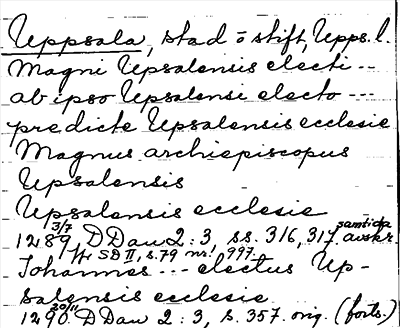 Uppsala, stad ō stift, Upps. l.
Magni Upsalensis electi --
ab ipso Upsalensi electo ---
predicte Upsalensis ecclesie
Magnus archiepiscopus
Upsalensis
Upsalensis ecclesie
1289 3/7 D Dan 2:3, ss. 316, 317 samtida avskr.
/tr SD II, s. 79 nr 997
Johannes --- electus Up-
salensis ecclesie
1290 30/11 D Dan 2:3, s. 357 orig. (forts.)